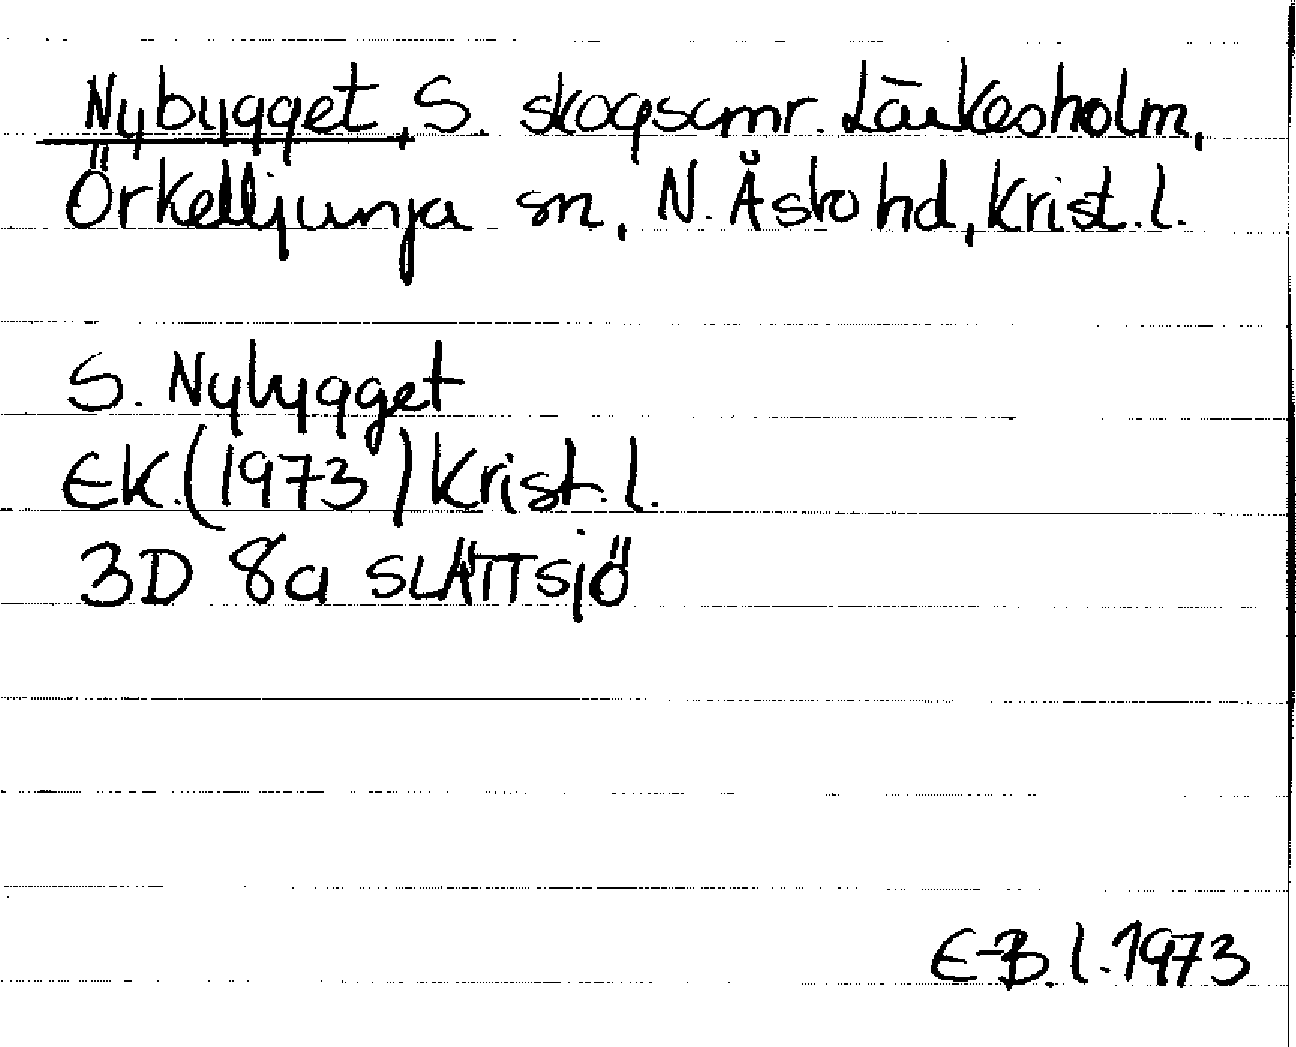 Nybygget, S. skogsomr. Lärkesholm,
Örkelljunja sn, N. Åsbo hd, Krist. l.
S. Nybygget
EK. (1973) Krist. l.
3D 8a SLÄTTSJÖ
E-B. l. 1973